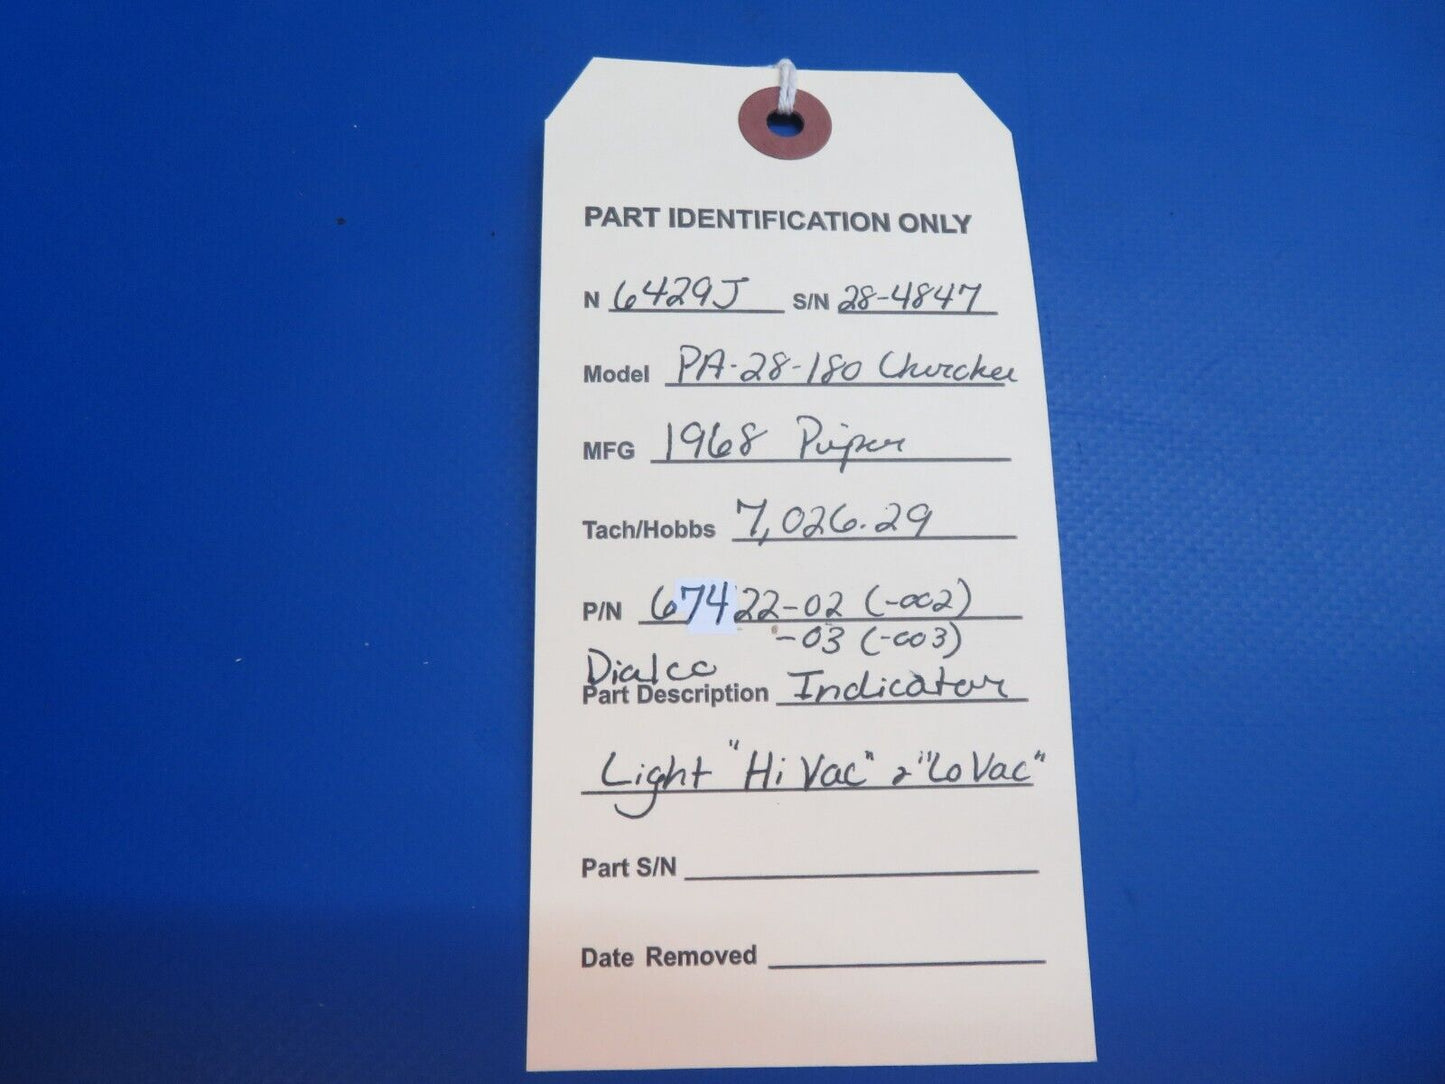 PART IDENTIFICATION ONLY
N 6429J S/N 28-4847
Model PA-28-180 Cherokee
MFG 1968 Piper
Tach/Hobbs 7,026.29
P/N 67422-02 (-002)
-03 (-003)
Dialco
Part Description Indicator
Light "Hi Vac" & "Lo Vac"
Part S/N
Date Removed